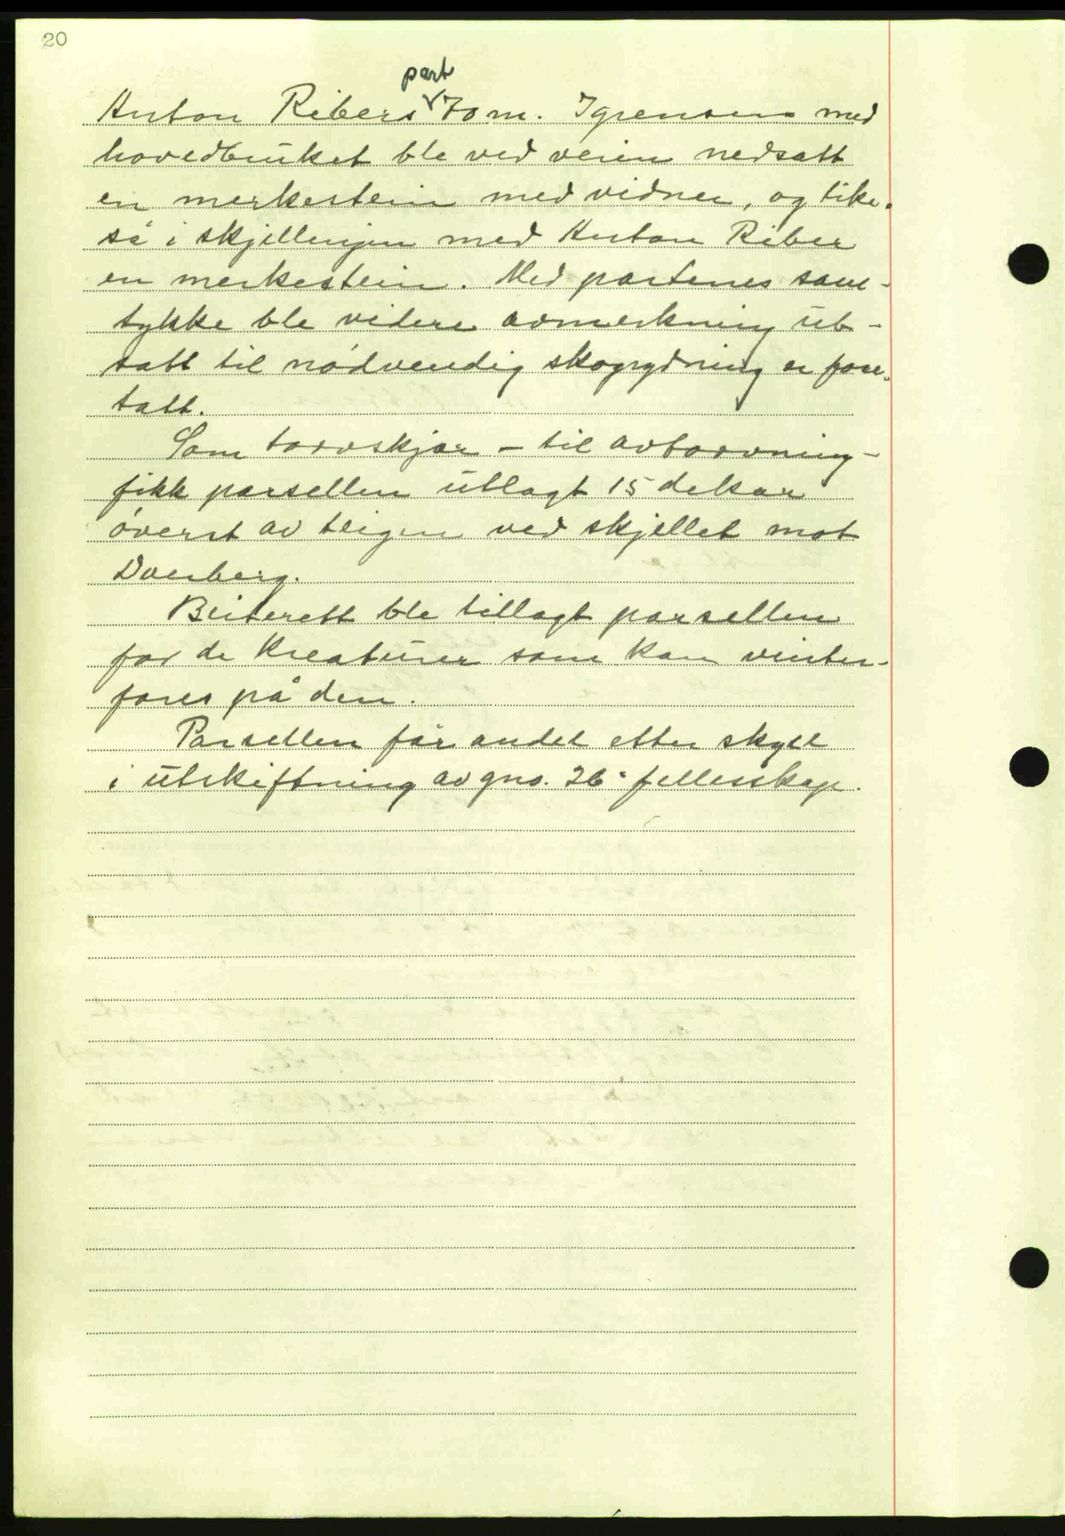 20
part
Anton Ribers 70 m. I grensen med
hovedbruket ble ved veien nedsatt
en merkestein med vidner, og like-
så i skjellinjen med Anton Riber
en merkestein. Med partenes sam-
tykke ble videre avmerkning ut-
satt til nødvendig skogrydning er fore-
tatt.
Som torvskjær - til avtorvning -
fikk parsellen utlagt 15 dekar
øverst av teigen ved skjellet mot
Dverberg.
Beiterett ble tillagt parsellen
for de kreaturer som kan vinter-
fores på den.
Parsellen får andel etter skyld
i utskiftning av gno. 26 fellesskap.